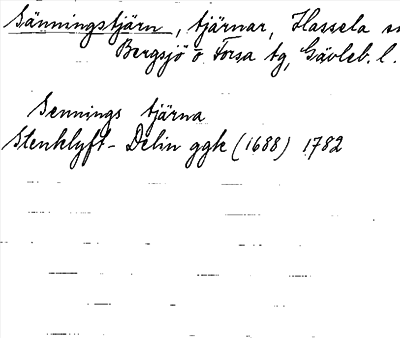 Sänningstjärn, tjärnar, Hassela sn
Bergsjö o. Forsa tg, Gävleb. l.
Sennings tjärna
Stenklyft-Delin ggk (1688) 1782